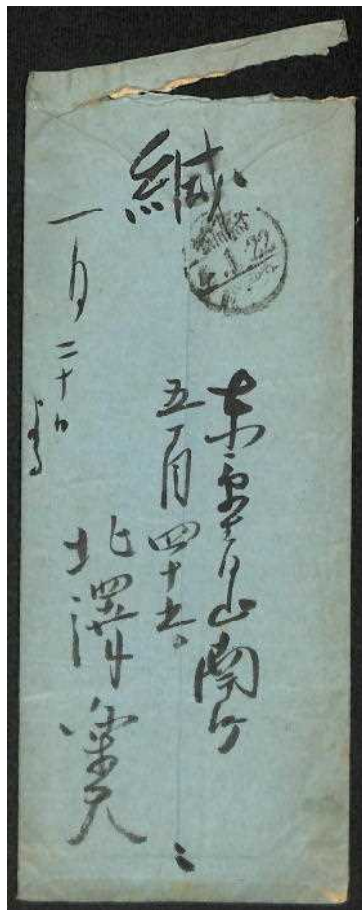 緘
1.22
東京青山南町
五丁目四十五
北澤樂天
一月二十日